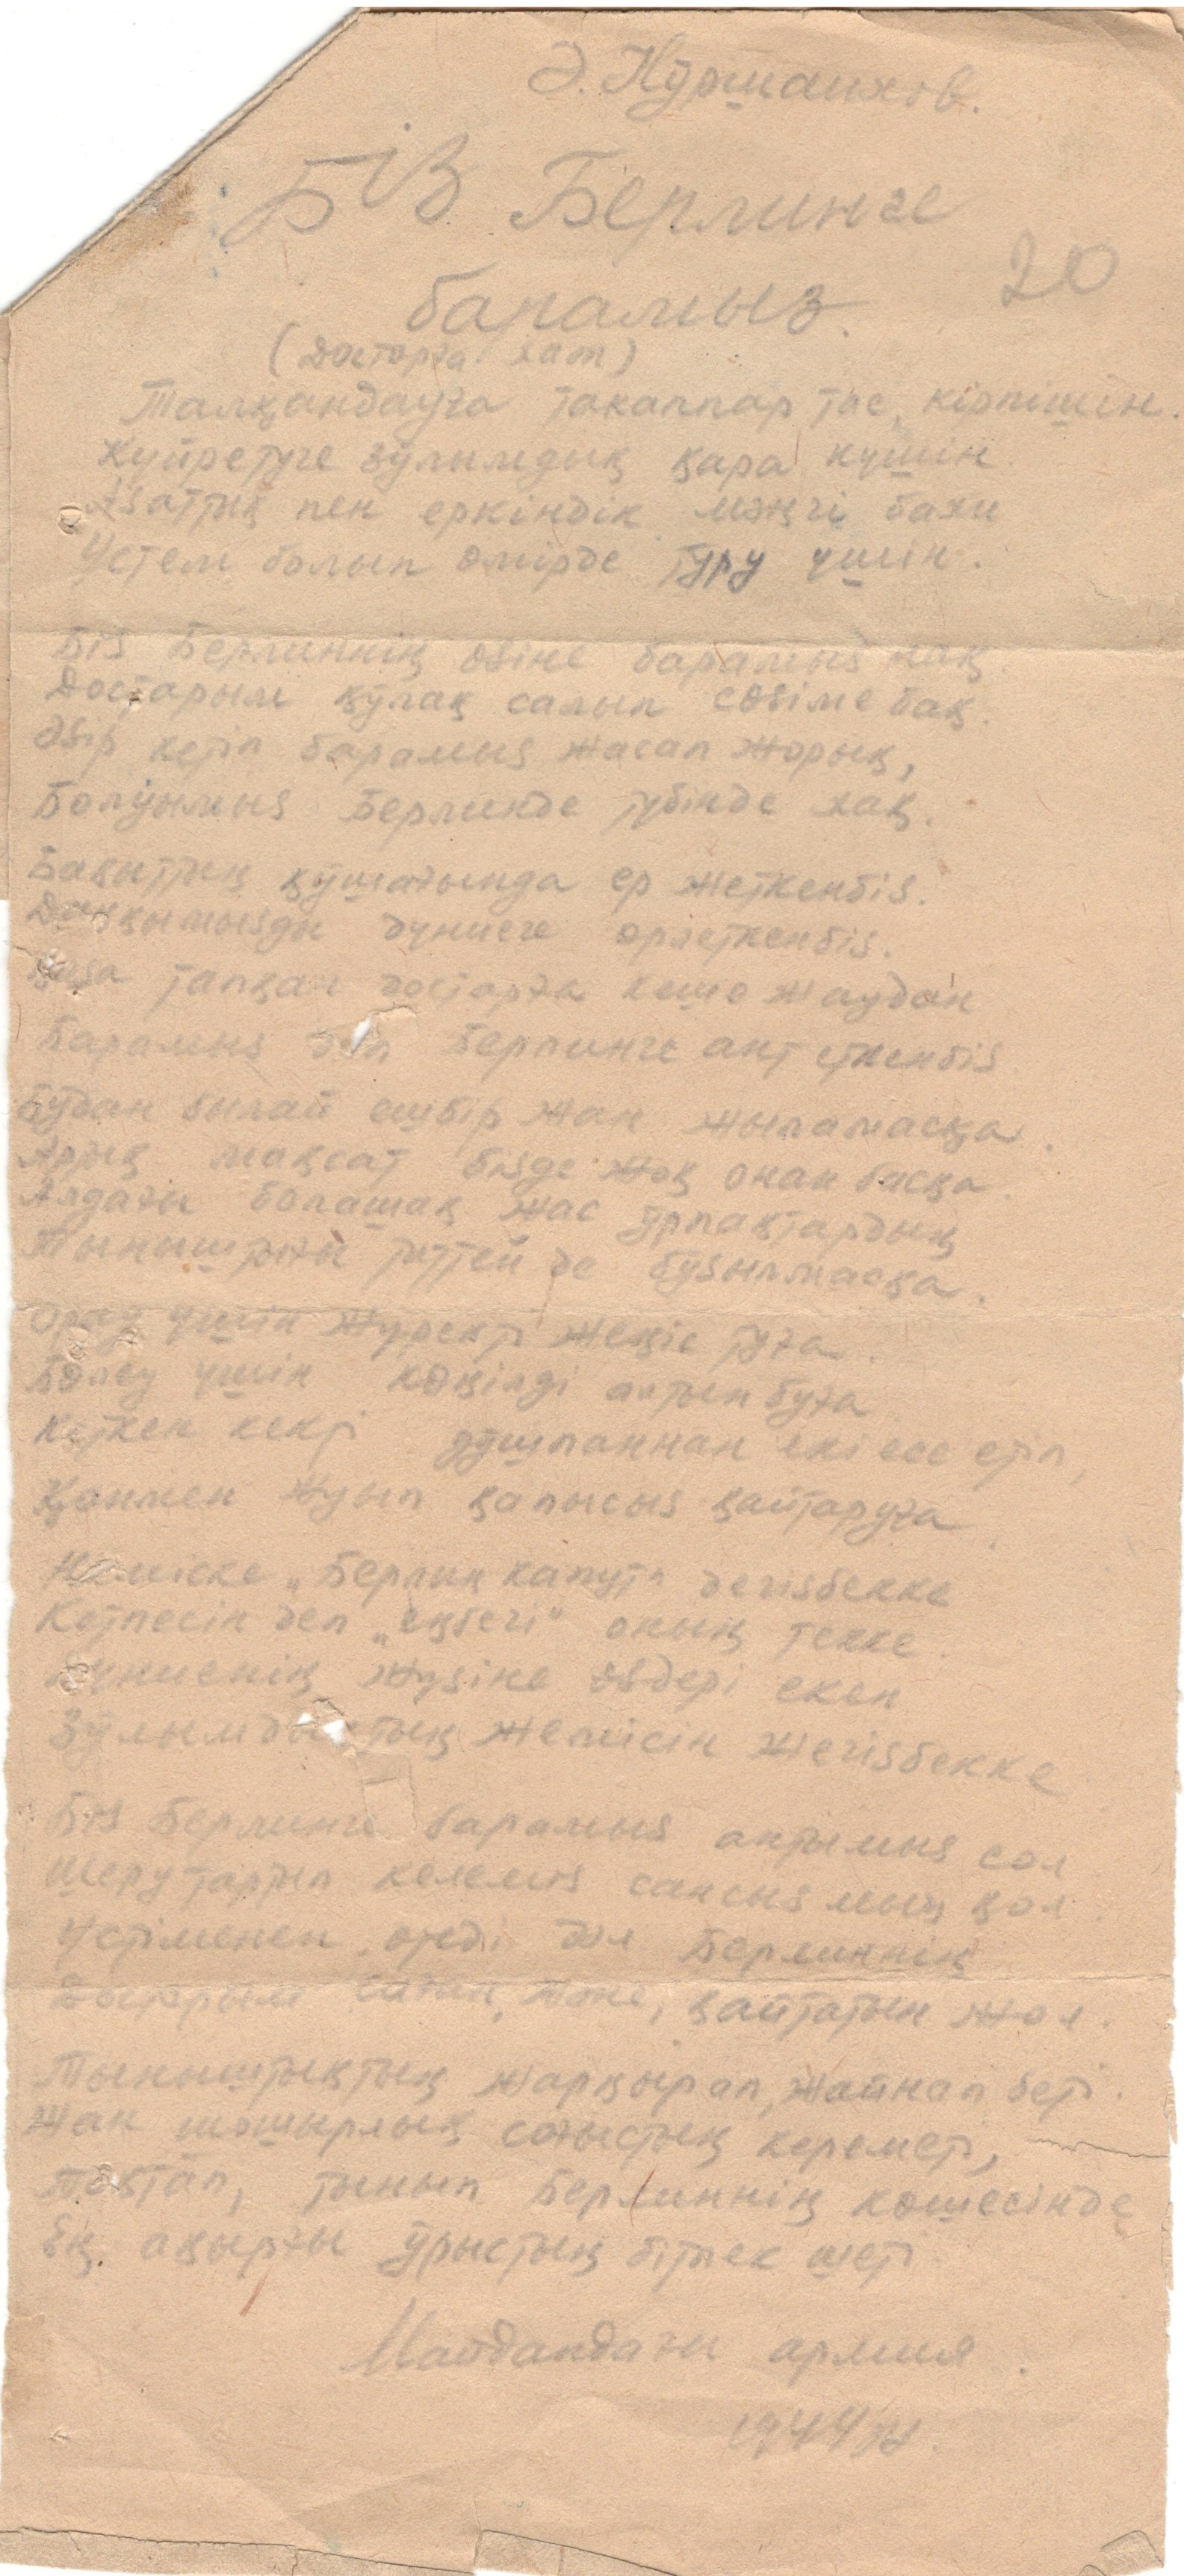 Ә. Нұршаихов.
БІЗ Берлинге
20
барамыз.
(Достарға хат)
Талқандауға такаппар тас, кірпішін.
Күйретуге зұлымдық қара күшін.
Азаттық пен еркіндік мәңгі бақи
Үстем болып өмірде тұру үшін.
Біз Берлиннің өзіне барамыз нақ.
Достарым құлақ салып сөзіме бақ.
Әзір кетіп барамыз жасап жорық,
Болуымыз Берлинде түбінде хақ.
Бақыттың құшағында ер жеткенбіз.
Даңқымызды дүниеге өрлеткенбіз.
Қаза тапқан достарға кеше жаудан
Барамыз деп Берлинге ант еткенбіз
Бұдан былай ешбір жан жыламасқа.
Артық мақсат бізде жоқ онан басқа.
Алдағы болашақ жас ұрпақтардың
Тыныштығы титтей де бұзылмасқа.
Орау үшін жүректі жеңіс туға.
Бөлеу үшін көңілді алтын буға
Кеткен кекті дұшпаннан екі есе етіп,
Қанмен жуып қапысыз қайтаруға.
Неміске „Берлин капут" дегізбекке
Кетпесін деп „еңбегі" оның текке.
Дүниенің жүзіне әздері еккен
Зұлымдықтың жемісін жегізбекке
Біз Берлинге барамыз антымыз сол
Шеру тартып келеміз сансыз мың қол.
Үстіменен өтеді дәл Берлиннің
Достарым қайтатын жол.
Тыныштықтың жарқырап, жайнап беті.
Жан шошырлық соғыстың кереметі,
Тоқтап, тынып Берлиннің көшесінде
Ең ақырғы ұрыстың бітпек шеті
Майдандағы армия.
1944 ж.